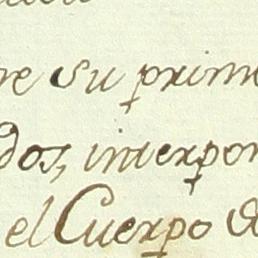 re su prime
dos, interpon
el Cuerpo